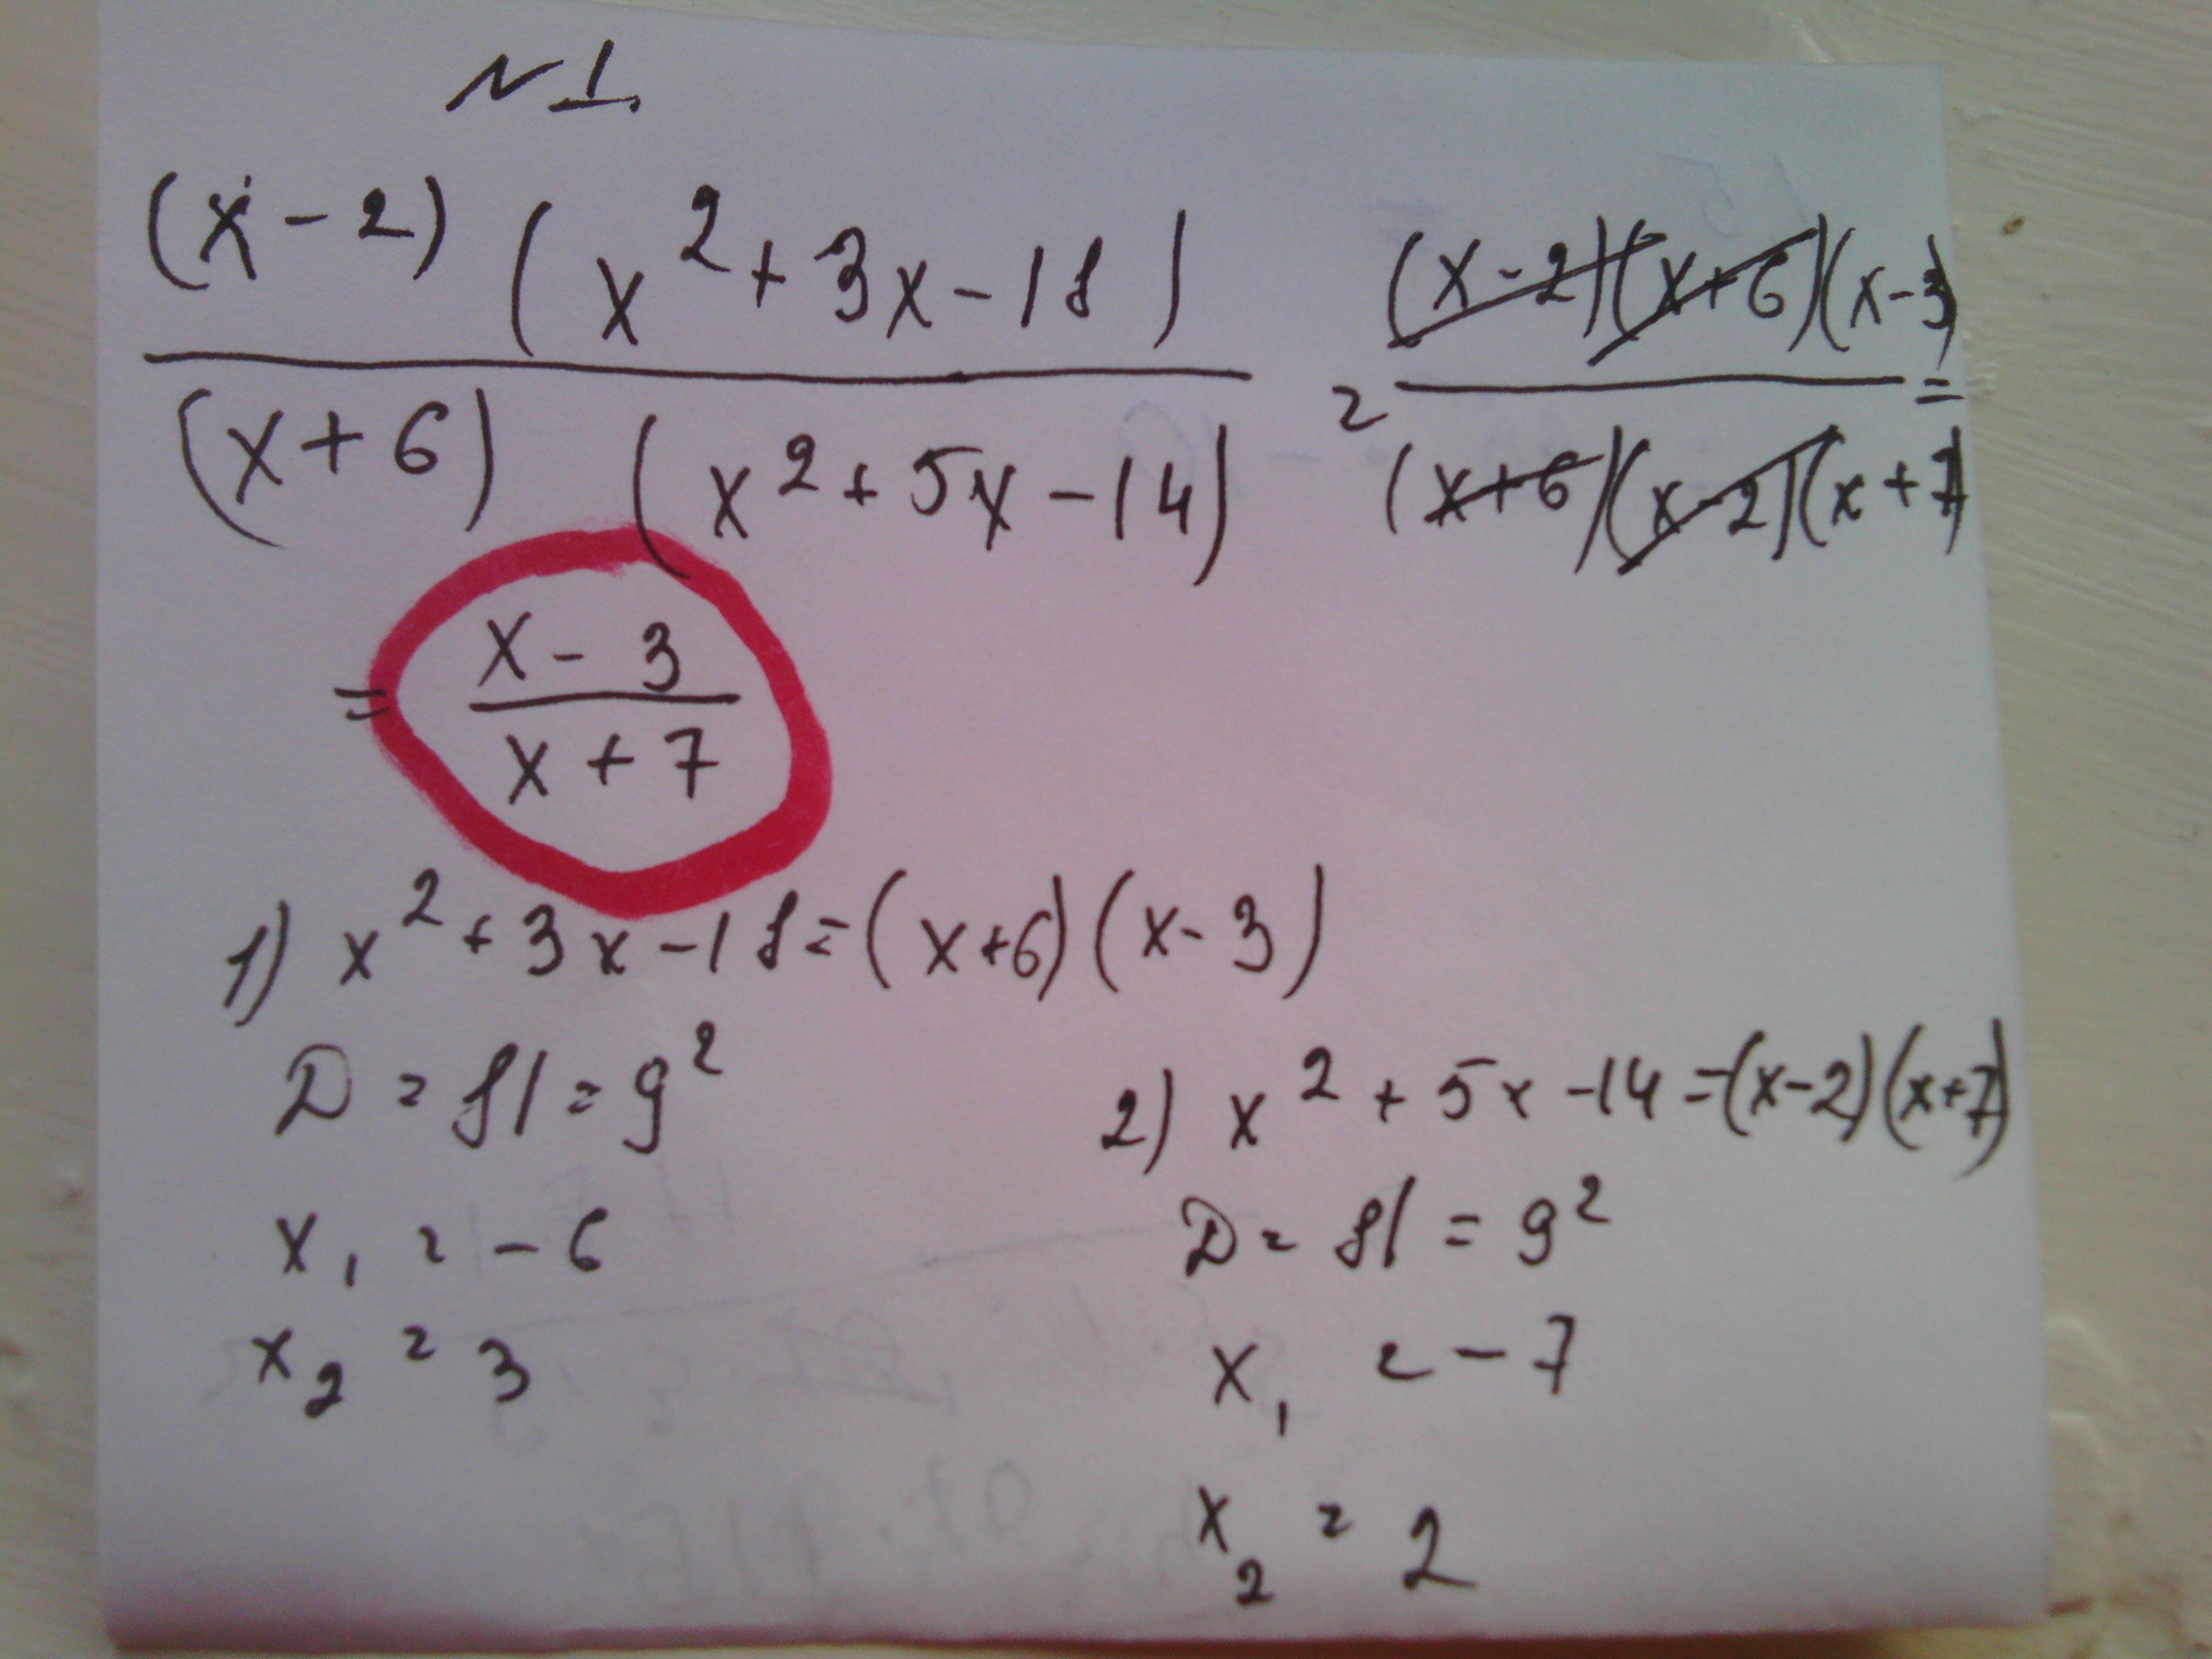 N 1.
(x-2) (x²+3x-18) / (x+6) (x²+5x-14) = (x-2)(x+6)(x-3) / (x+6)(x-2)(x+7) =
= x-3 / x+7
1) x²+3x-18=(x+6)(x-3)
D=81=9²
x₁=-6
x₂=3
2) x²+5x-14=(x-2)(x+7)
D=81=9²
x₁=-7
x₂=2